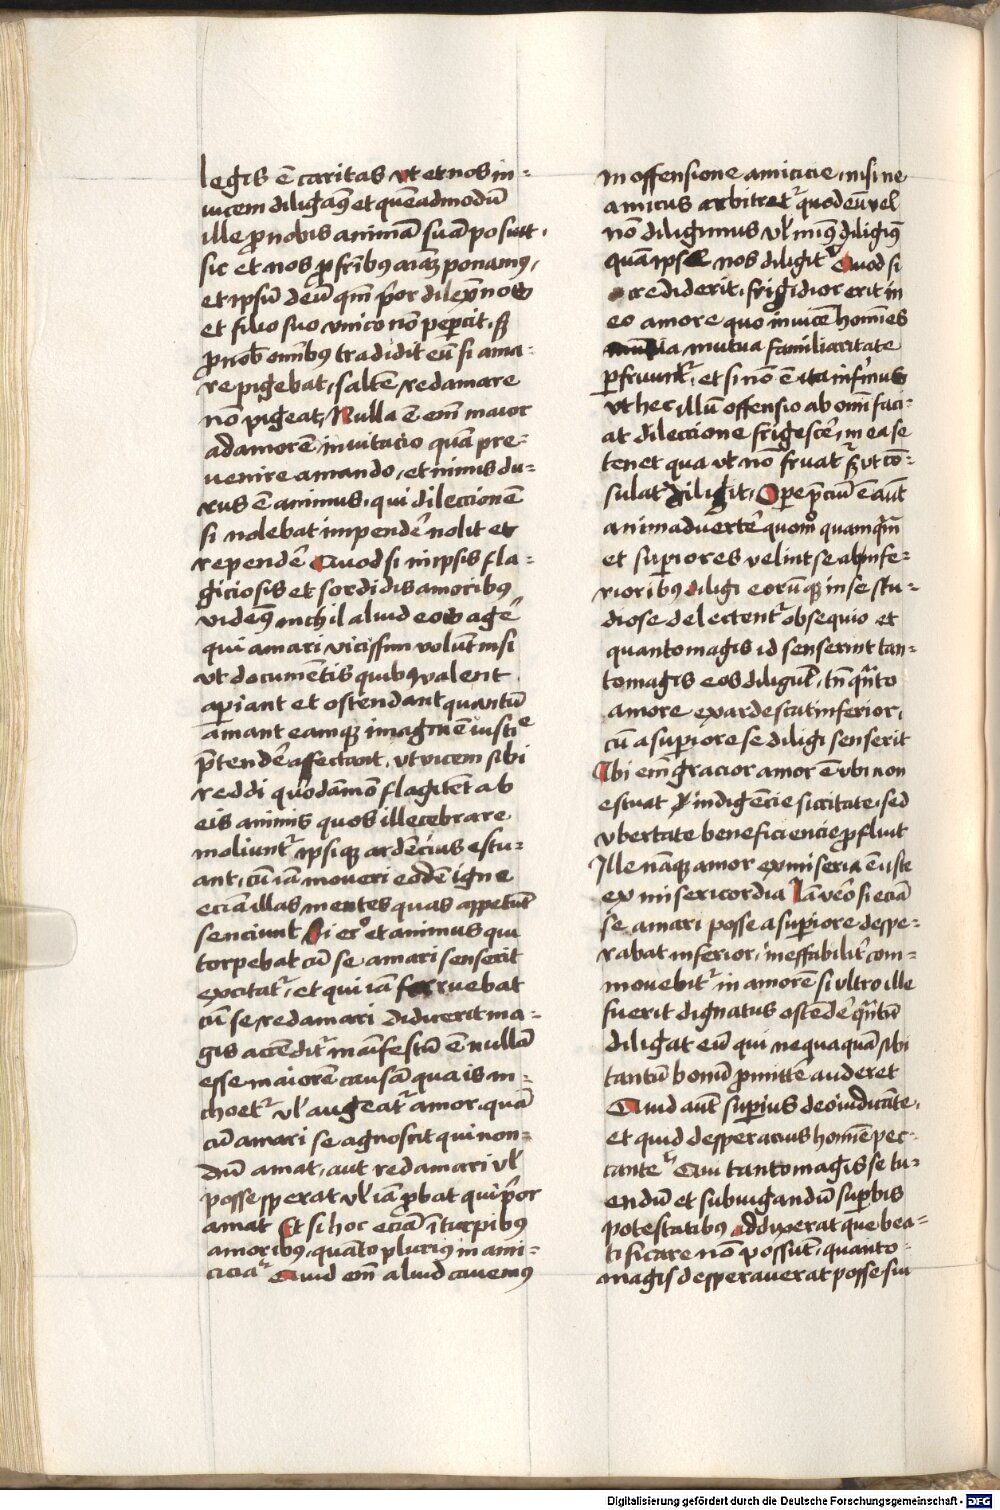 legis ē caritas vt et nos in-
uicem diligamꝰ et quēadmodū
ille ꝓ nobis animā suā posuit.
sic et nos ꝓ frībus aīaꝫ ponamꝰ,
et ipsū deū qm̄ p̄or dilexit nos
et filio suo vnico nō peꝑcit. sꝫ
ꝓ nob̄ om̄ibꝰ tradidit eū si ama-
re pigebat, saltē redamare
nō pigeat, Nulla ē em̄ maior
ad amorē inuitacio quā pre-
uenire amando, et nimis du-
rus ē animus, qui dileccionē
si nolebat impendē nolit et
rependē Quod si in ipsis fla-
giciosis et sordidis amoribꝰ
videmꝰ nichil aliud eos agē
qui amari vicissim volūt nisi
vt documētis quibꝰ valent
aꝑiant et ostendant quantū
amant eamqꝫ imaginē iusticie
p̄tendē affectant, vt vicem sibi
reddi quodāmō flagitēt ab
eis animis quos illecebrare
moliuntᷣ ipsiqꝫ ardēcius estu-
ant, cū iā moueri eodē igne
eciā illas mentes quas appetūt
senciunt Si ergo et animus qui
torpebat cū se amari senserit
excitatᷣ, et qui iā feruebat
cū se redamari didicerit ma-
gis accēditᷣ manifestū ē nullā
esse maiorē causā qua is in-
choetᷣ vl' augeatᷣ amor, quā
cū amari se agnoscit qui non-
dū amat, aut redamari vl'
posse sperat vl' iā ꝓbat qui p̄or
amat Et si hoc eciā ī turpibꝰ
amoribꝰ, quāto plurius in ami-
cicia Quid em̄ aliud cauemꝰ
in offensione amicicie, nisi ne
amicus arbitretᷣ quod eū vel
nō diligimus vl' minꝰ diligimꝰ
quā ipse nos diligit Quod si
crediderit, frigidior erit in
eo amore quo inuicē homīes
mutua familiaritate
ꝑfruuntᷣ, et si nō ē ita infirmus
vt hec illū offensio ab om̄i faci-
at dileccione frigescē, in ea se
tenet qua vt nō fruatᷣ sꝫ vt cō-
sulat diligit, Opereprecium ē aūt
animaduertē quomo quamqm̄
et suꝑiores velint se ab infe-
rioribꝰ diligi eorūqꝫ in se stu-
diose delectentᷣ obsequio et
quanto magis id senserint tan-
to magis eos diligūt, tn̄ qn̄to
amore exardescit inferior,
cū a suꝑiore se diligi senserit
Ibi em̄ gracior amor ē vbi non
estuat indigēcie siccitate, sed
vbertate beneficiencie ꝓfluit
Ille nāqꝫ amor ex miseria ē iste
ex misericordia Iā vero si eciā
se amari posse a suꝑiore despe-
rabat inferior, ineffabilitᷣ com-
mouebitᷣ in amorē si vltro ille
fuerit dignatus ostēdē qn̄tū
diligat eū qui nequaquā sibi
tantū bonū ꝓmittē auderet
Quid aūt suꝑius deo iudicāte,
et quid desperacius homīe pec-
cante Qui tanto magis se tu-
endū et subiugandū suꝑbis
potestatibꝰ addixerat que bea-
tificare nō possūt, quanto
magis desperauerat posse sui